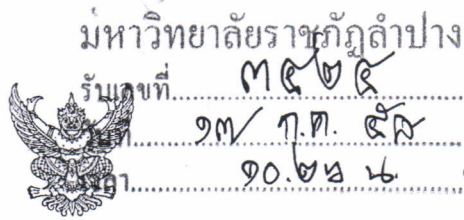 มหาวิทยาลัยราชภัฏลำปาง
รับเลขที่ ๓๕๒๕
วันที่ ๑๗ ก.ค. ๕๘
เวลา ๑๐.๒๖ น.